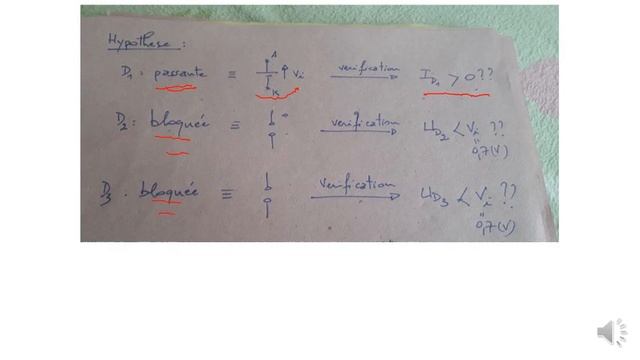 Hypothese :
D1 : passante ≡ A K Vi verification I_D1 > 0 ??
D2 : bloquée ≡ verification U_D2 < Vi ??
" 0,7(V)
D3 . bloquée ≡ verification U_D3 < Vi ??
" 0,7(V)